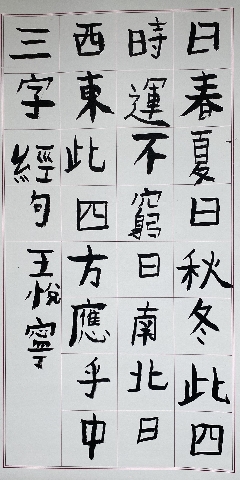 日春夏日秋冬此四
時運不窮日南北日
西東此四方應乎中
三字經句王悅寧